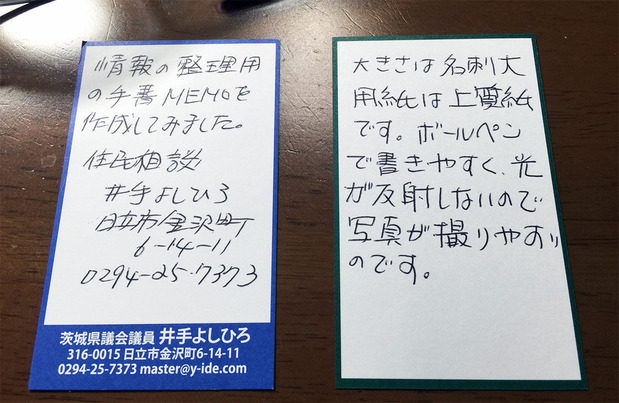 情報の整理用
の手書MEMOを
作成してみました。
住民相談
井手よしひろ
日立市金沢町
6-14-11
0294-25-7373
茨城県議会議員 井手よしひろ
316-0015 日立市金沢町6-14-11
0294-25-7373 master@y-ide.com
大きさは名刺大
用紙は上質紙
です。ボールペン
で書きやすく、光
が反射しないので
写真が撮りやすい
のです。